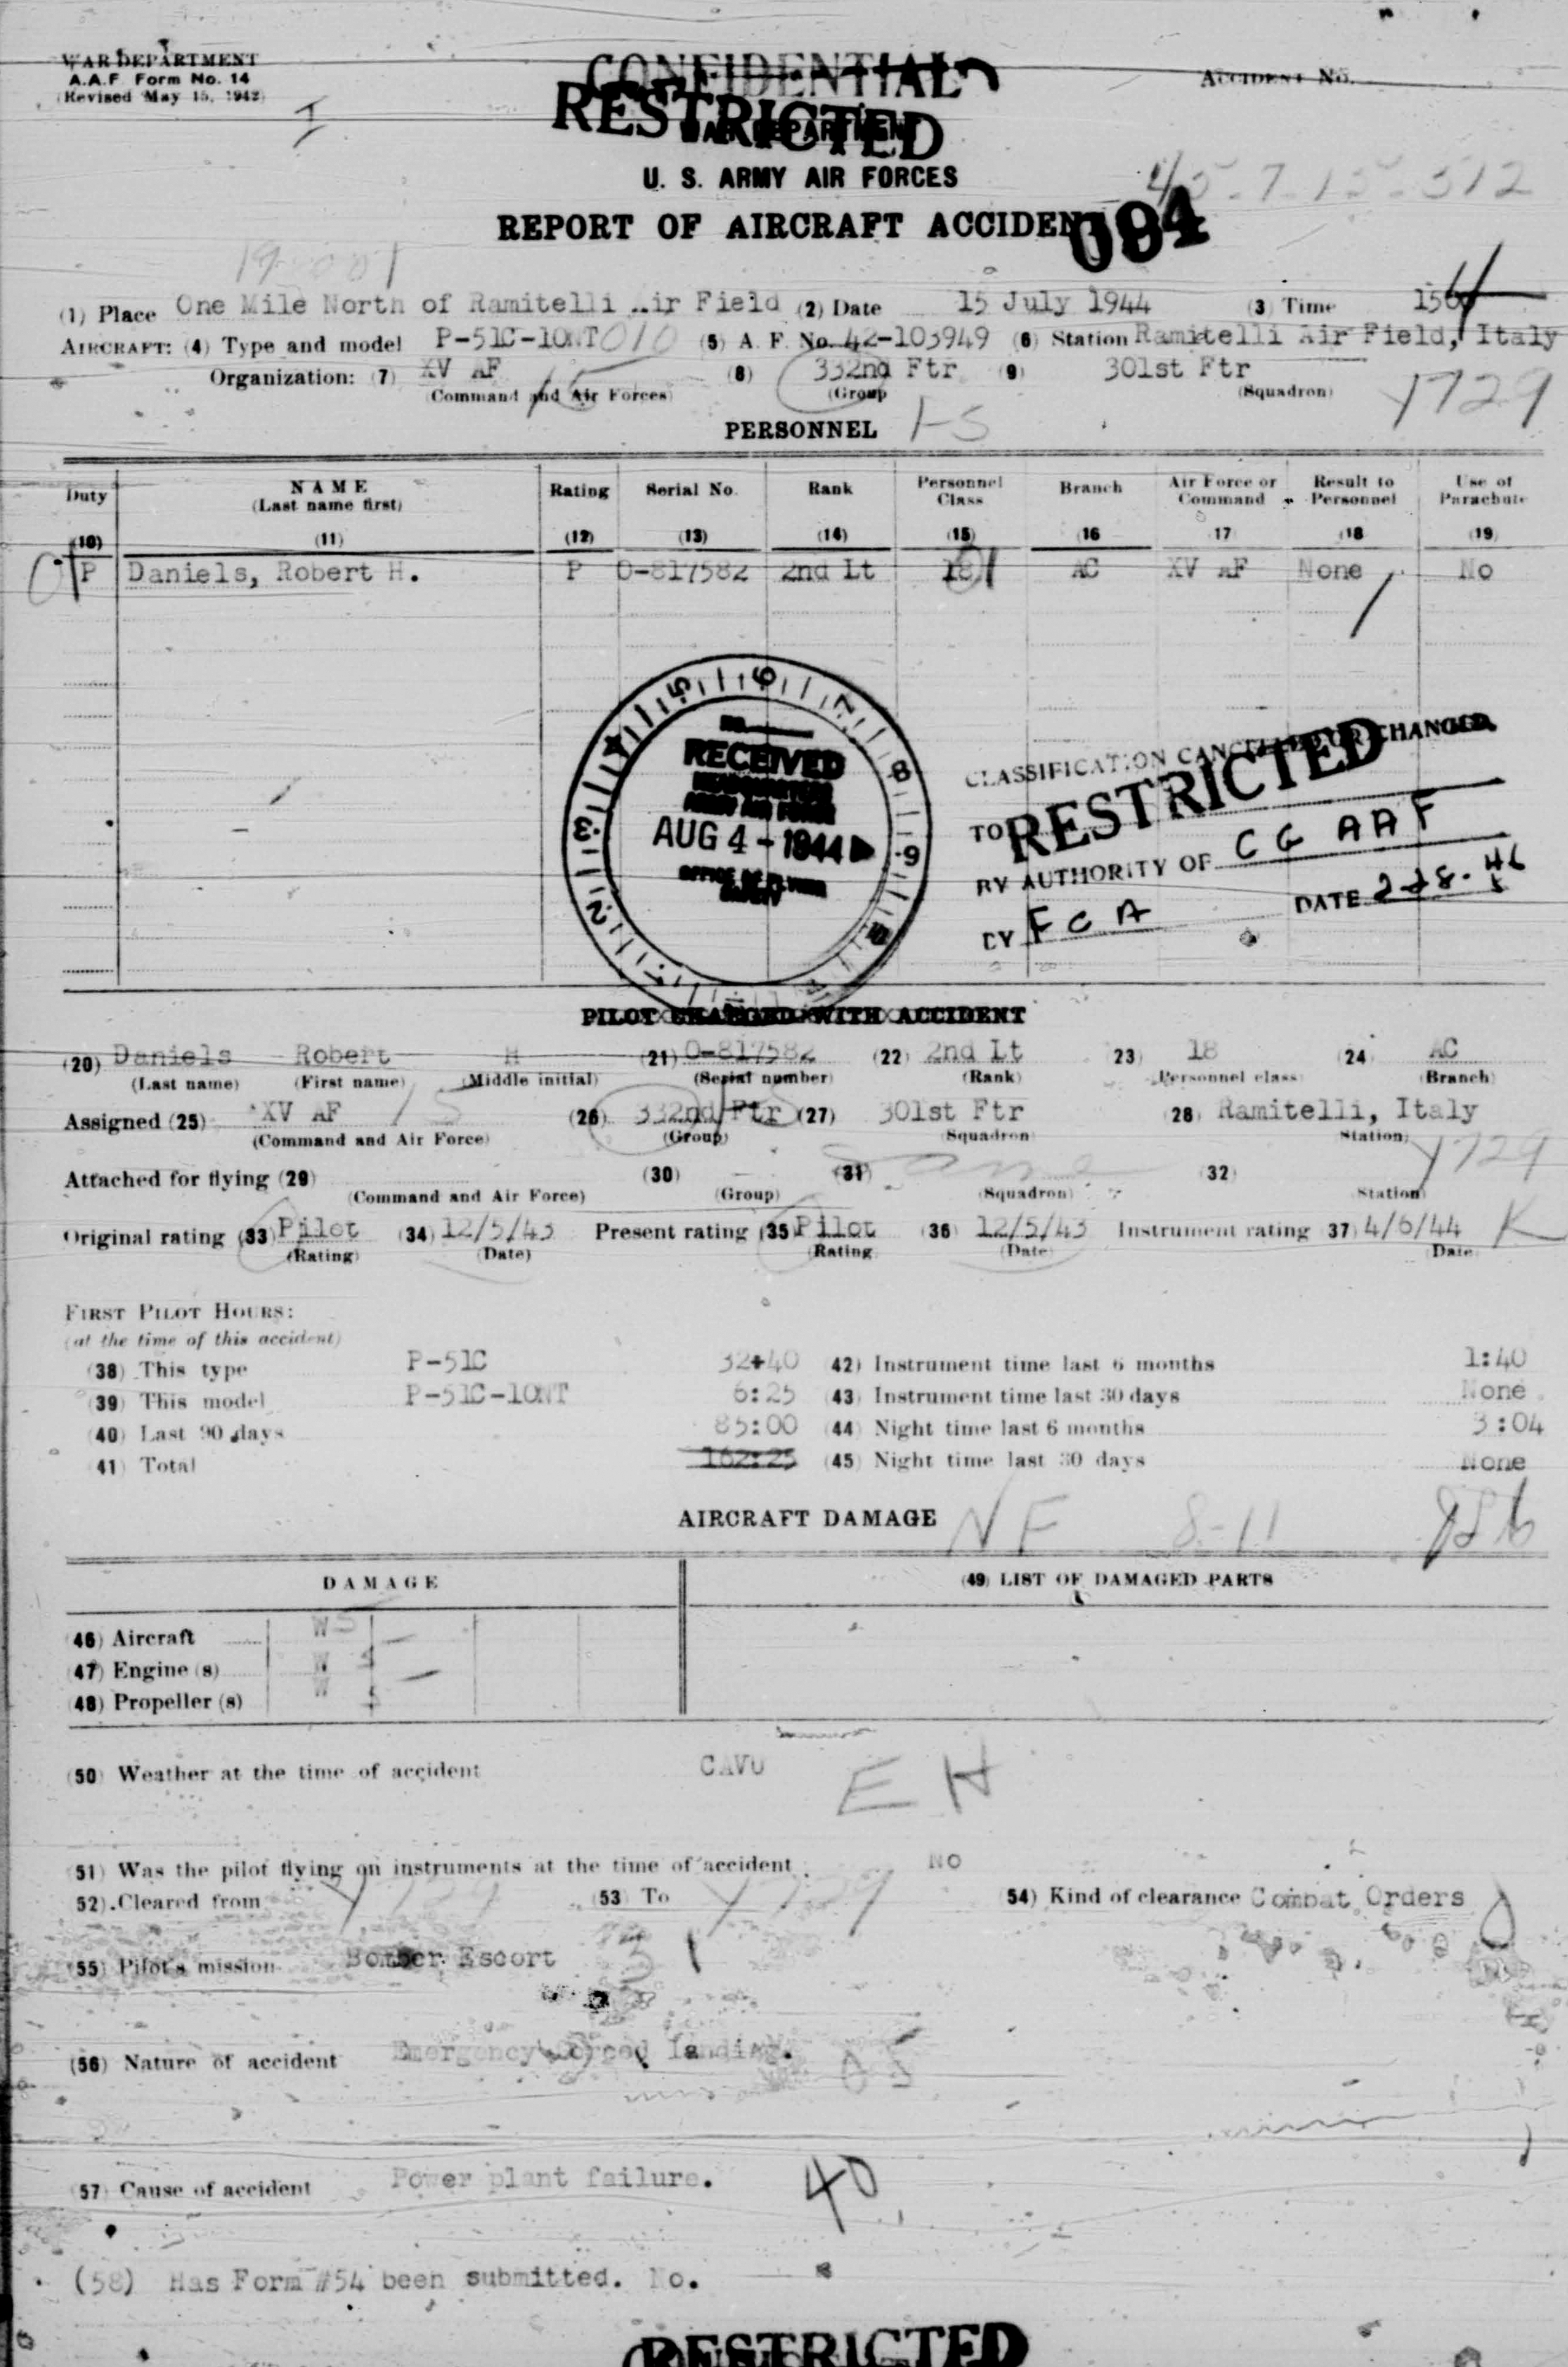 WAR DEPARTMENT
A.A.F. Form No. 14
(Revised May 15, 1942)
CONFIDENTIAL
RESTRICTED
WAR DEPARTMENT
ACCIDENT NO.
U. S. ARMY AIR FORCES
45-7-15-512
REPORT OF AIRCRAFT ACCIDENT
094
(1) Place One Mile North of Ramitelli Air Field (2) Date 15 July 1944 (3) Time
AIRCRAFT: (4) Type and model P-51C-10NT 010 (5) A. F. No. 42-103949 (6) Station Ramitelli Air Field, Italy
Organization: (7) XV AF 15 (8) 332nd Ftr (9) 301st Ftr
(Command and Air Forces) (Group) (Squadron) Y729
PERSONNEL
Duty NAME (Last name first) Rating Serial No. Rank Personnel Class Branch Air Force or Command Result to Personnel Use of Parachute
(10) (11) (12) (13) (14) (15) (16 17 (18 (19)
P Daniels, Robert H. P O-817582 2nd Lt 18 AC XV AF None No
RECEIVED
AUG 4 - 1944
CLASSIFICATION CANCELLED OR CHANGED
TO RESTRICTED
BY AUTHORITY OF C G A A F
BY F C A DATE
PILOT CHARGED WITH ACCIDENT
(20) Daniels Robert H (21) O-817582 (22) 2nd Lt 23) 18 (24 AC
(Last name) (First name) (Middle initial) (Serial number) (Rank) Personnel class) (Branch)
Assigned (25) XV AF 15 (26) 332nd Ftr (27) 301st Ftr (28) Ramitelli, Italy
(Command and Air Force) (Group) Squadron) Station) Y729
Attached for flying (29) (30) (31) (32)
(Command and Air Force) (Group) (Squadron) Station)
Original rating (33) Pilot (34) 12/5/43 Present rating (35) Pilot (36) 12/5/43 Instrument rating 37) 4/6/44 K
(Rating) (Date) (Rating (Date) Date
FIRST PILOT HOURS:
(at the time of this accident)
(38) This type P-51C 32:40 42) Instrument time last 6 months 1:40
(39) This model P-51C-10NT 6:25 (43) Instrument time last 30 days None
(40) Last 90 days 85:00 (44) Night time last 6 months 3:04
(41) Total 162:25 (45) Night time last 30 days None
AIRCRAFT DAMAGE NF 8-11
DAMAGE (49) LIST OF DAMAGED PARTS
(46) Aircraft W
(47) Engine (s) W
(48) Propeller (s) W
(50) Weather at the time of accident CAVU E H
(51) Was the pilot flying on instruments at the time of accident No
52) Cleared from Y729 (53) To Y729 54) Kind of clearance Combat Orders
(55) Pilot's mission Bomber Escort
(56) Nature of accident Emergency forced landing.
(57) Cause of accident Power plant failure. 40
(58) Has Form #54 been submitted. No.
RESTRICTED